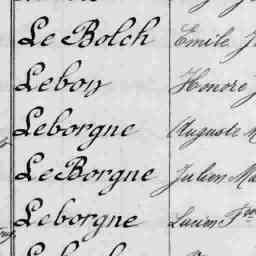 Le Bolch Emile
Lebon Honoré
Leborgne Auguste
Le Borgne Julien
Leborgne Lucien